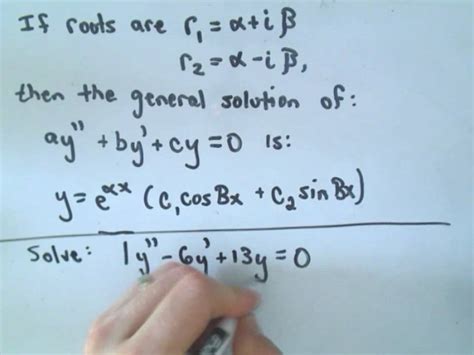 If roots are r₁ = α + i β
r₂ = α - i β,
then the general solution of:
ay'' + by' + cy = 0 is:
y = e^αx (C₁ cos Bx + C₂ sin Bx)
Solve: 1y'' - 6y' + 13y = 0